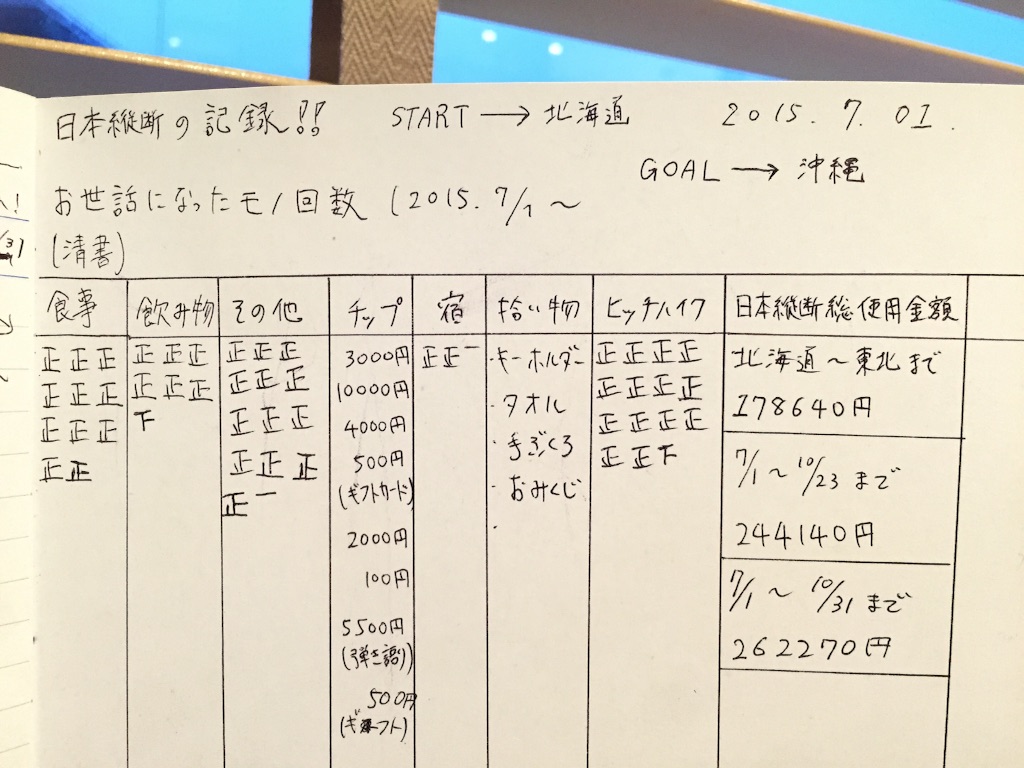 日本縦断の記録!! START → 北海道 2015. 7. 01.
GOAL → 沖縄
お世話になったモノ回数 (2015. 7/1 ~
(清書)
食事 飲み物 その他 チップ 宿 拾い物 ヒッチハイク 日本縦断総使用金額
食事
正正正
正正正
正正正
正正
飲み物
正正正
正正正
下
その他
正正正
正正正
正正正
正正正
正一
チップ
3000円
10000円
4000円
500円
(ギフトカード)
2000円
100円
5500円
(弾き語り)
500円
(ギフト)
宿
正正一
拾い物
・キーホルダー
・タオル
・手ぶくろ
・おみくじ
・
ヒッチハイク
正正正正
正正正正
正正正正
正正下
日本縦断総使用金額
北海道~東北まで
178640円
7/1 ~ 10/23 まで
244140円
7/1 ~ 10/31 まで
262270円